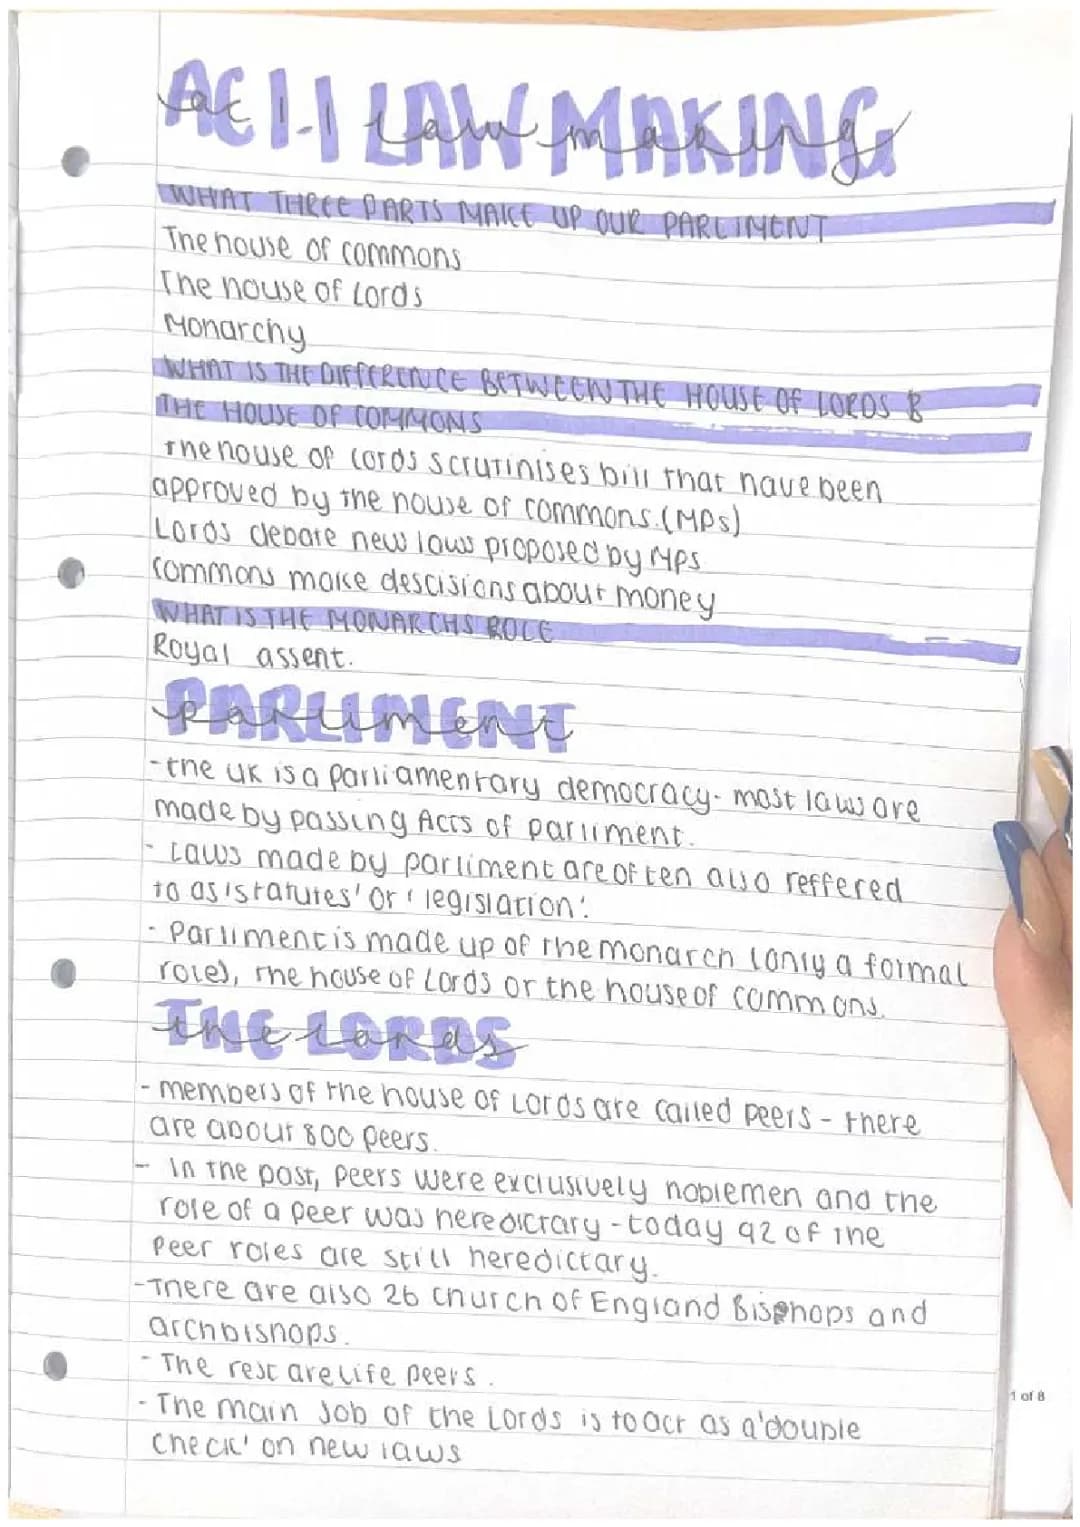 AC 1.1 LAW MAKING
ac 1.1 law making
WHAT THREE PARTS MAKE UP OUR PARLIMENT
The house of commons
The house of Lords
Monarchy
WHAT IS THE DIFFERENCE BETWEEN THE HOUSE OF LORDS &
THE HOUSE OF COMMONS
The house of Lords scrutinises bill that have been
approved by the house of commons. (MPs)
Lords debate new laws proposed by MPs
Commons make descisions about money
WHAT IS THE MONARCHS ROLE
Royal assent.
PARLIMENT
parliment
- the UK is a parliamentary democracy - most laws are
made by passing Acts of parliment.
- Laws made by parliment are often also reffered
to as 'statutes' or 'legislation'
- Parliment is made up of the monarch (only a formal
role), the house of Lords or the house of commons.
THE LORDS
the lords
- members of the house of Lords are called peers - there
are about 800 peers.
- In the past, peers were exclusively noblemen and the
role of a peer was heredictary - today 92 of the
peer roles are still heredictary.
- There are also 26 church of England Bishops and
archbishops.
- The rest are life peers.
- The main job of the Lords is to act as a 'double
check' on new laws
1 of 8